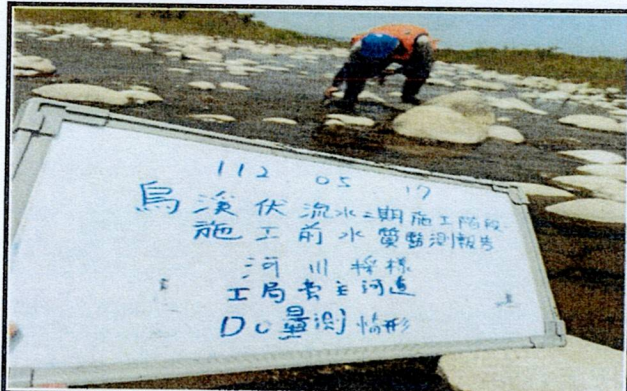 112 05 17
烏溪伏流水二期施工階段
施工前水質監測報告
河川採樣
主河道
DO量測情形